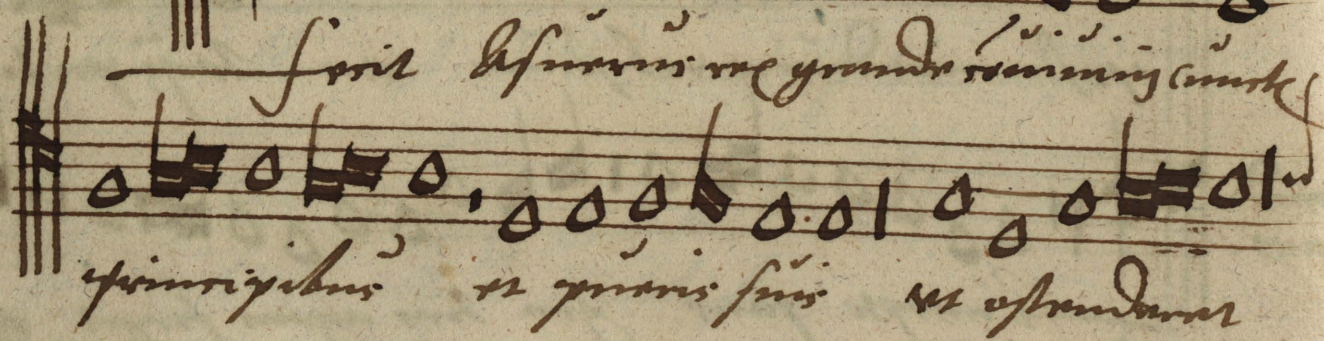 fecit Asuerus rex grande conuiuiu cunct
principibus et pueris suis ut ostenderet